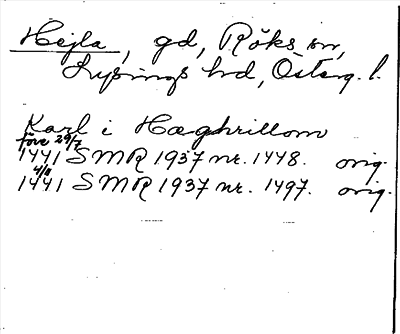 Hejla, gd, Röks sn,
Lysings hd, Österg. l.
Karl i Hæghrillom
före 29/7
1441 SMR 1937 nr. 1448. orig.
4/11
1441 SMR 1937 nr. 1497. orig.